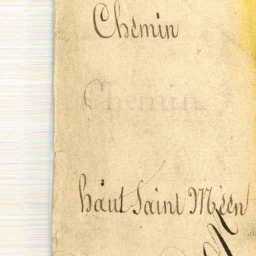 Chemin
Chemin
haut Saint Méen